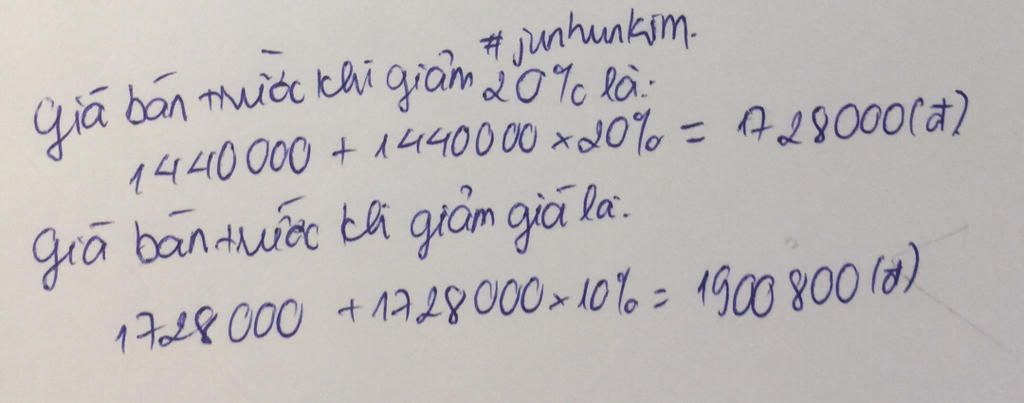 #junhunkim.
Giá bán trước khi giảm 20% là:
1440000 + 1440000 × 20% = 1728000(đ)
Giá bán trước khi giảm giá là:
1728000 + 1728000 × 10% = 1900800(đ)